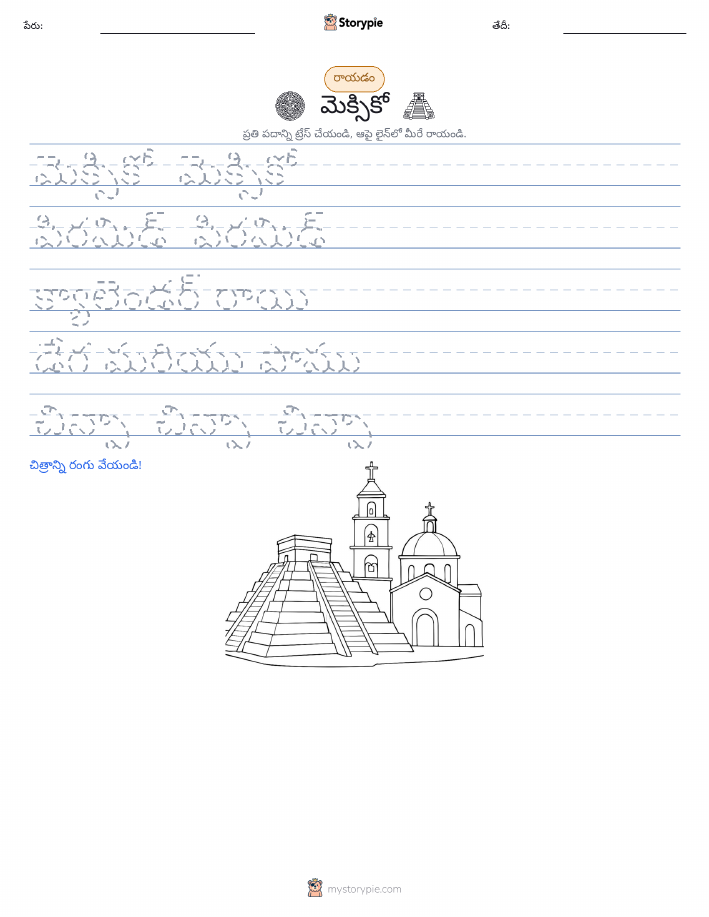 పేరు:
Storypie
తేదీ:
రాయడం
మెక్సికో
ప్రతి పదాన్ని ట్రేస్ చేయండి, ఆపై లైన్‌లో మీరే రాయండి.
మెక్సికో మెక్సికో
పిరమిడ్ పిరమిడ్
క్యాలెండర్ రాయి
డేగ మరియు పాము
చినాంపా చినాంపా చినాంపా
చిత్రాన్ని రంగు వేయండి!
mystorypie.com